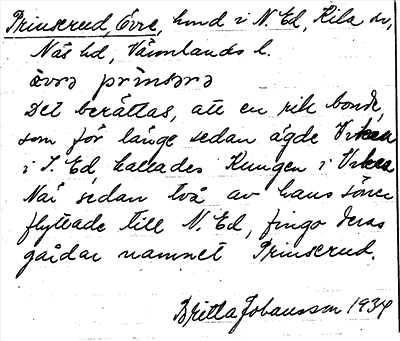 Prinserud, Övre, hmd i N. Ed, Kila sn,
Näs hd, Värmlands l.
övrə prinsərə
Det berättas, att en rik bonde,
som för länge sedan ägde
i S. Ed, kallades Kungen i
När sedan två av hans söner
flyttade till N. Ed, fingo deras
gårdar namnet Prinserud.
Britta Johansson 1934